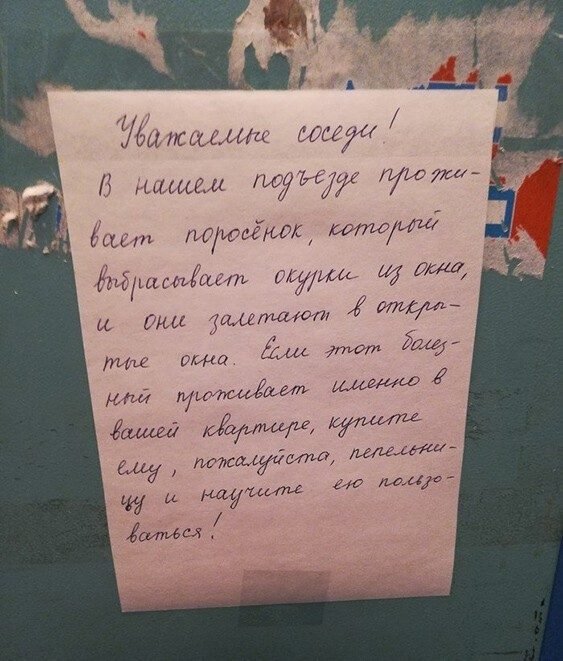 Уважаемые соседи!
В нашем подъезде прожи-
вает поросёнок, который
выбрасывает окурки из окна,
и они залетают в откры-
тые окна. Если этот болез-
ный проживает именно в
вашей квартире, купите
ему, пожалуйста, пепельни-
цу и научите ею пользо-
ваться!